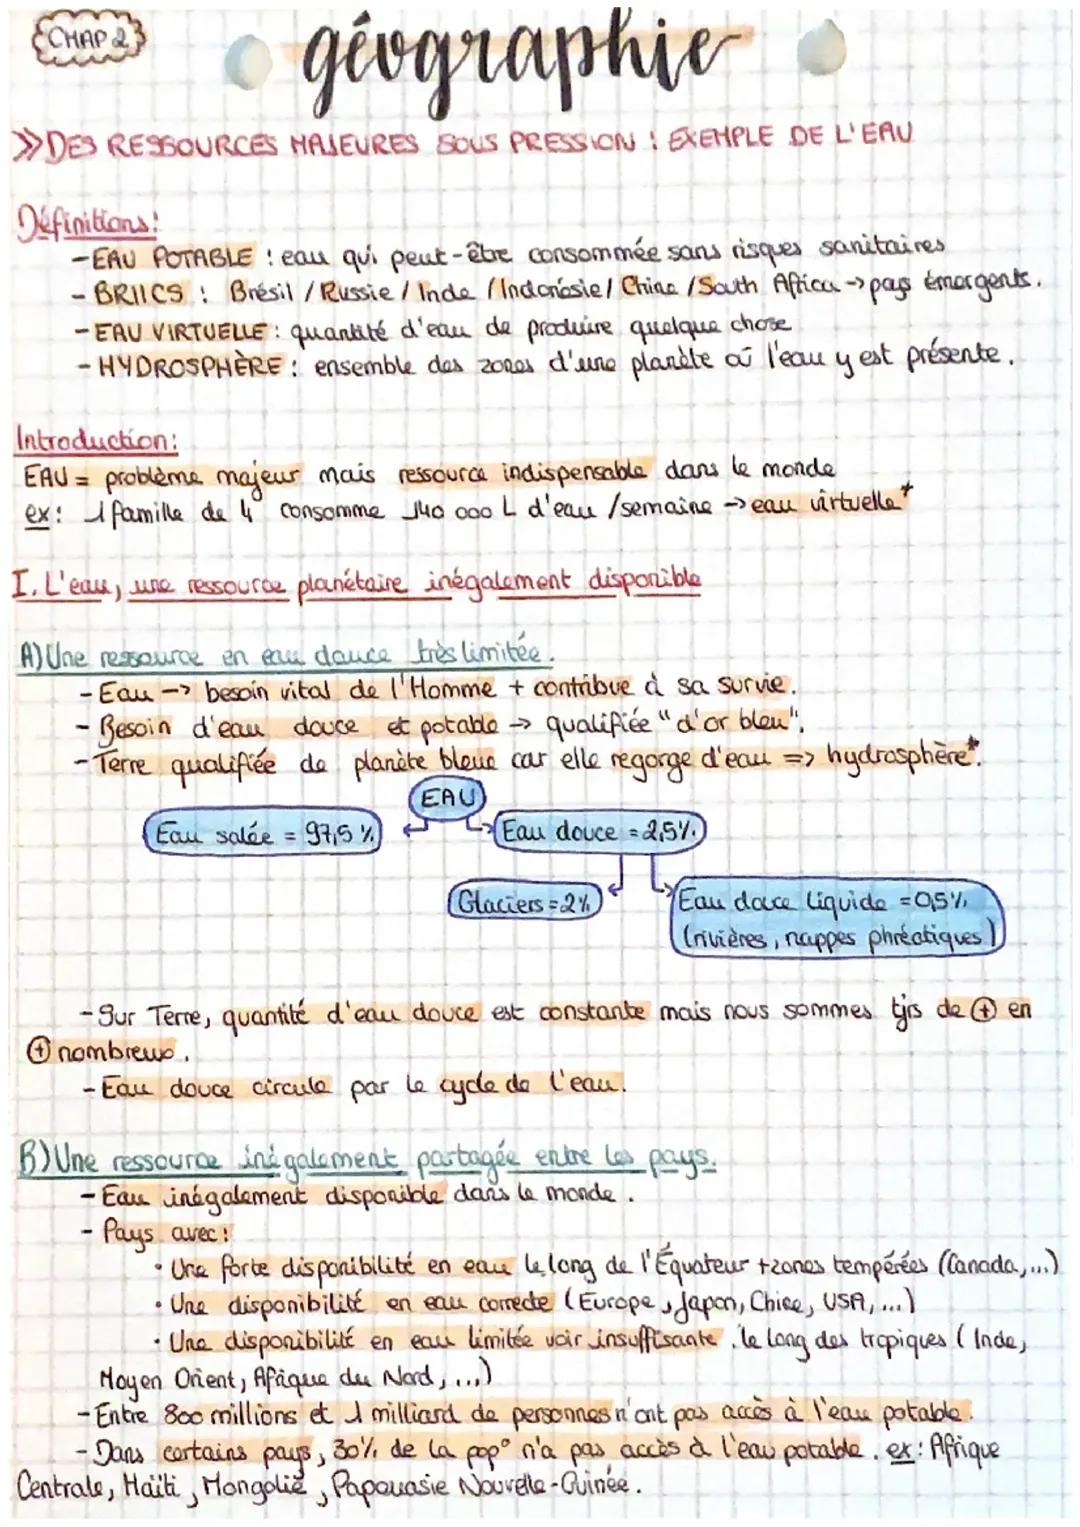 CHAP 2
géographie
>> DES RESSOURCES MAJEURES SOUS PRESSION : EXEMPLE DE L'EAU
Définitions:
- EAU POTABLE : eau qui peut-être consommée sans risques sanitaires
- BRIICS : Brésil / Russie / Inde / Indonésie / Chine / South Africa -> pays émergents.
- EAU VIRTUELLE : quantité d'eau de produire quelque chose
- HYDROSPHÈRE : ensemble des zones d'une planète où l'eau y est présente.
Introduction:
EAU = problème majeur mais ressource indispensable dans le monde
ex: 1 famille de 4 consomme 140 000 L d'eau /semaine -> eau virtuelle*
I. L'eau, une ressource planétaire inégalement disponible
A) Une ressource en eau douce très limitée.
- Eau -> besoin vital de l'Homme + contribue à sa survie.
- Besoin d'eau douce et potable -> qualifiée "d'or bleu".
- Terre qualifiée de planète bleue car elle regorge d'eau => hydrosphère*.
EAU
Eau salée = 97,5 %
Eau douce = 2,5%.
Glaciers = 2%
Eau douce liquide = 0,5%
(rivières, nappes phréatiques)
- Sur Terre, quantité d'eau douce est constante mais nous sommes tjrs de + en
+ nombreux.
- Eau douce circule par le cycle de l'eau.
B) Une ressource inégalement partagée entre les pays.
- Eau inégalement disponible dans le monde.
- Pays avec:
• Une forte disponibilité en eau le long de l'Équateur + zones tempérées (Canada,...)
• Une disponibilité en eau correcte (Europe, Japon, Chine, USA, ...)
• Une disponibilité en eau limitée voir insuffisante. le long des tropiques (Inde,
Moyen Orient, Afrique du Nord, ...)
- Entre 800 millions et 1 milliard de personnes n'ont pas accès à l'eau potable.
- Dans certains pays, 30% de la pop° n'a pas accès à l'eau potable. ex: Afrique
Centrale, Haïti, Mongolie, Papouasie Nouvelle-Guinée.